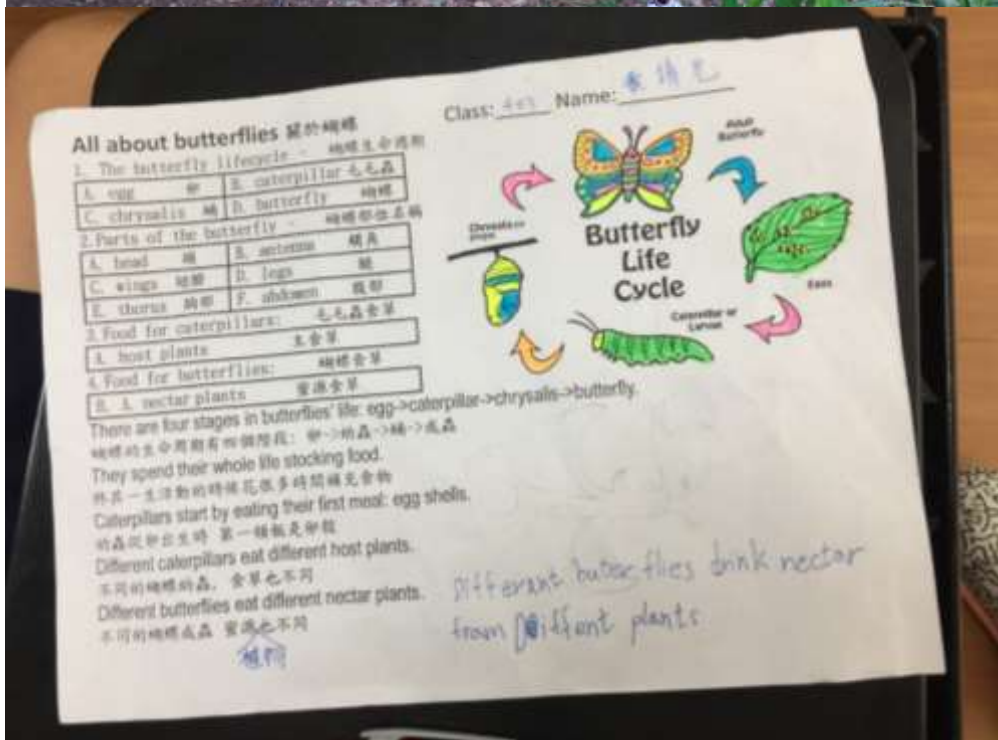 Class: 403 Name:
All about butterflies 關於蝴蝶
1. The butterfly lifecycle - 蝴蝶生命週期
A. egg 卵 B. caterpillar 毛毛蟲
C. chrysalis 蛹 D. butterfly 蝴蝶
2. Parts of the butterfly - 蝴蝶部位名稱
A. head 頭 B. antenna 觸角
C. wings 翅膀 D. legs 腿
E. thorax 胸部 F. abdomen 腹部
3. Food for caterpillars: 毛毛蟲食草
A. host plants 主食草
4. Food for butterflies: 蝴蝶食草
B. A. nectar plants 蜜源食草
There are four stages in butterflies' life: egg->caterpillar->chrysalis->butterfly.
蝴蝶的生命周期有四個階段: 卵->幼蟲->蛹->成蟲
They spend their whole life stocking food.
終其一生活動的時候花很多時間補充食物
Caterpillars start by eating their first meal: egg shells.
幼蟲從卵出生時 第一頓飯是卵殼
Different caterpillars eat different host plants.
不同的蝴蝶幼蟲, 食草也不同
Different butterflies eat different nectar plants.
不同的蝴蝶成蟲 蜜源也不同
植物
Adult
Butterfly
Butterfly
Life
Cycle
Eggs
Caterpillar or
Larvae
Chrysalis or
pupa
Differant buterflies drink nectar
from Diffent plants